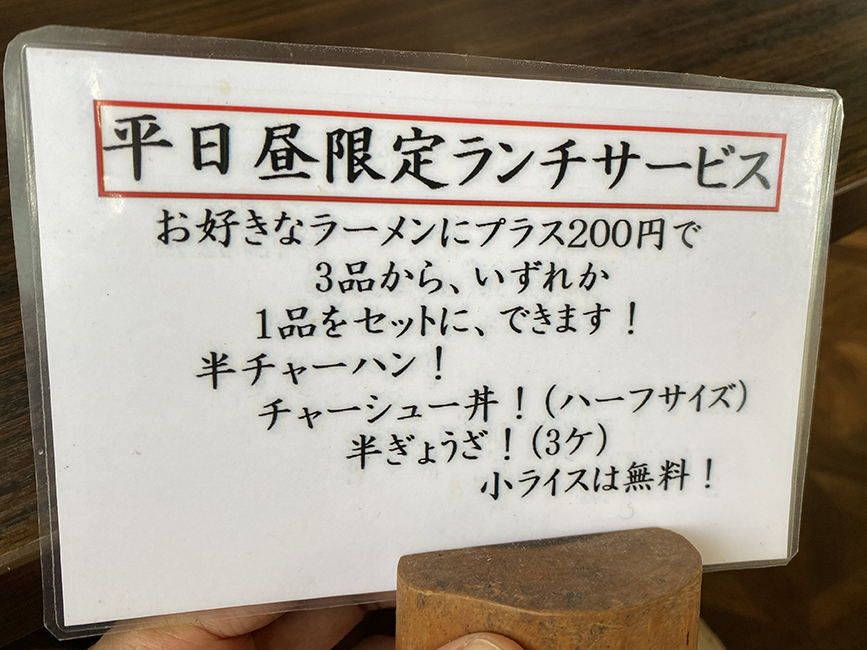 平日昼限定ランチサービス
お好きなラーメンにプラス200円で
3品から、いずれか
1品をセットに、できます！
半チャーハン！
チャーシュー丼！（ハーフサイズ）
半ぎょうざ！（3ケ）
小ライスは無料！